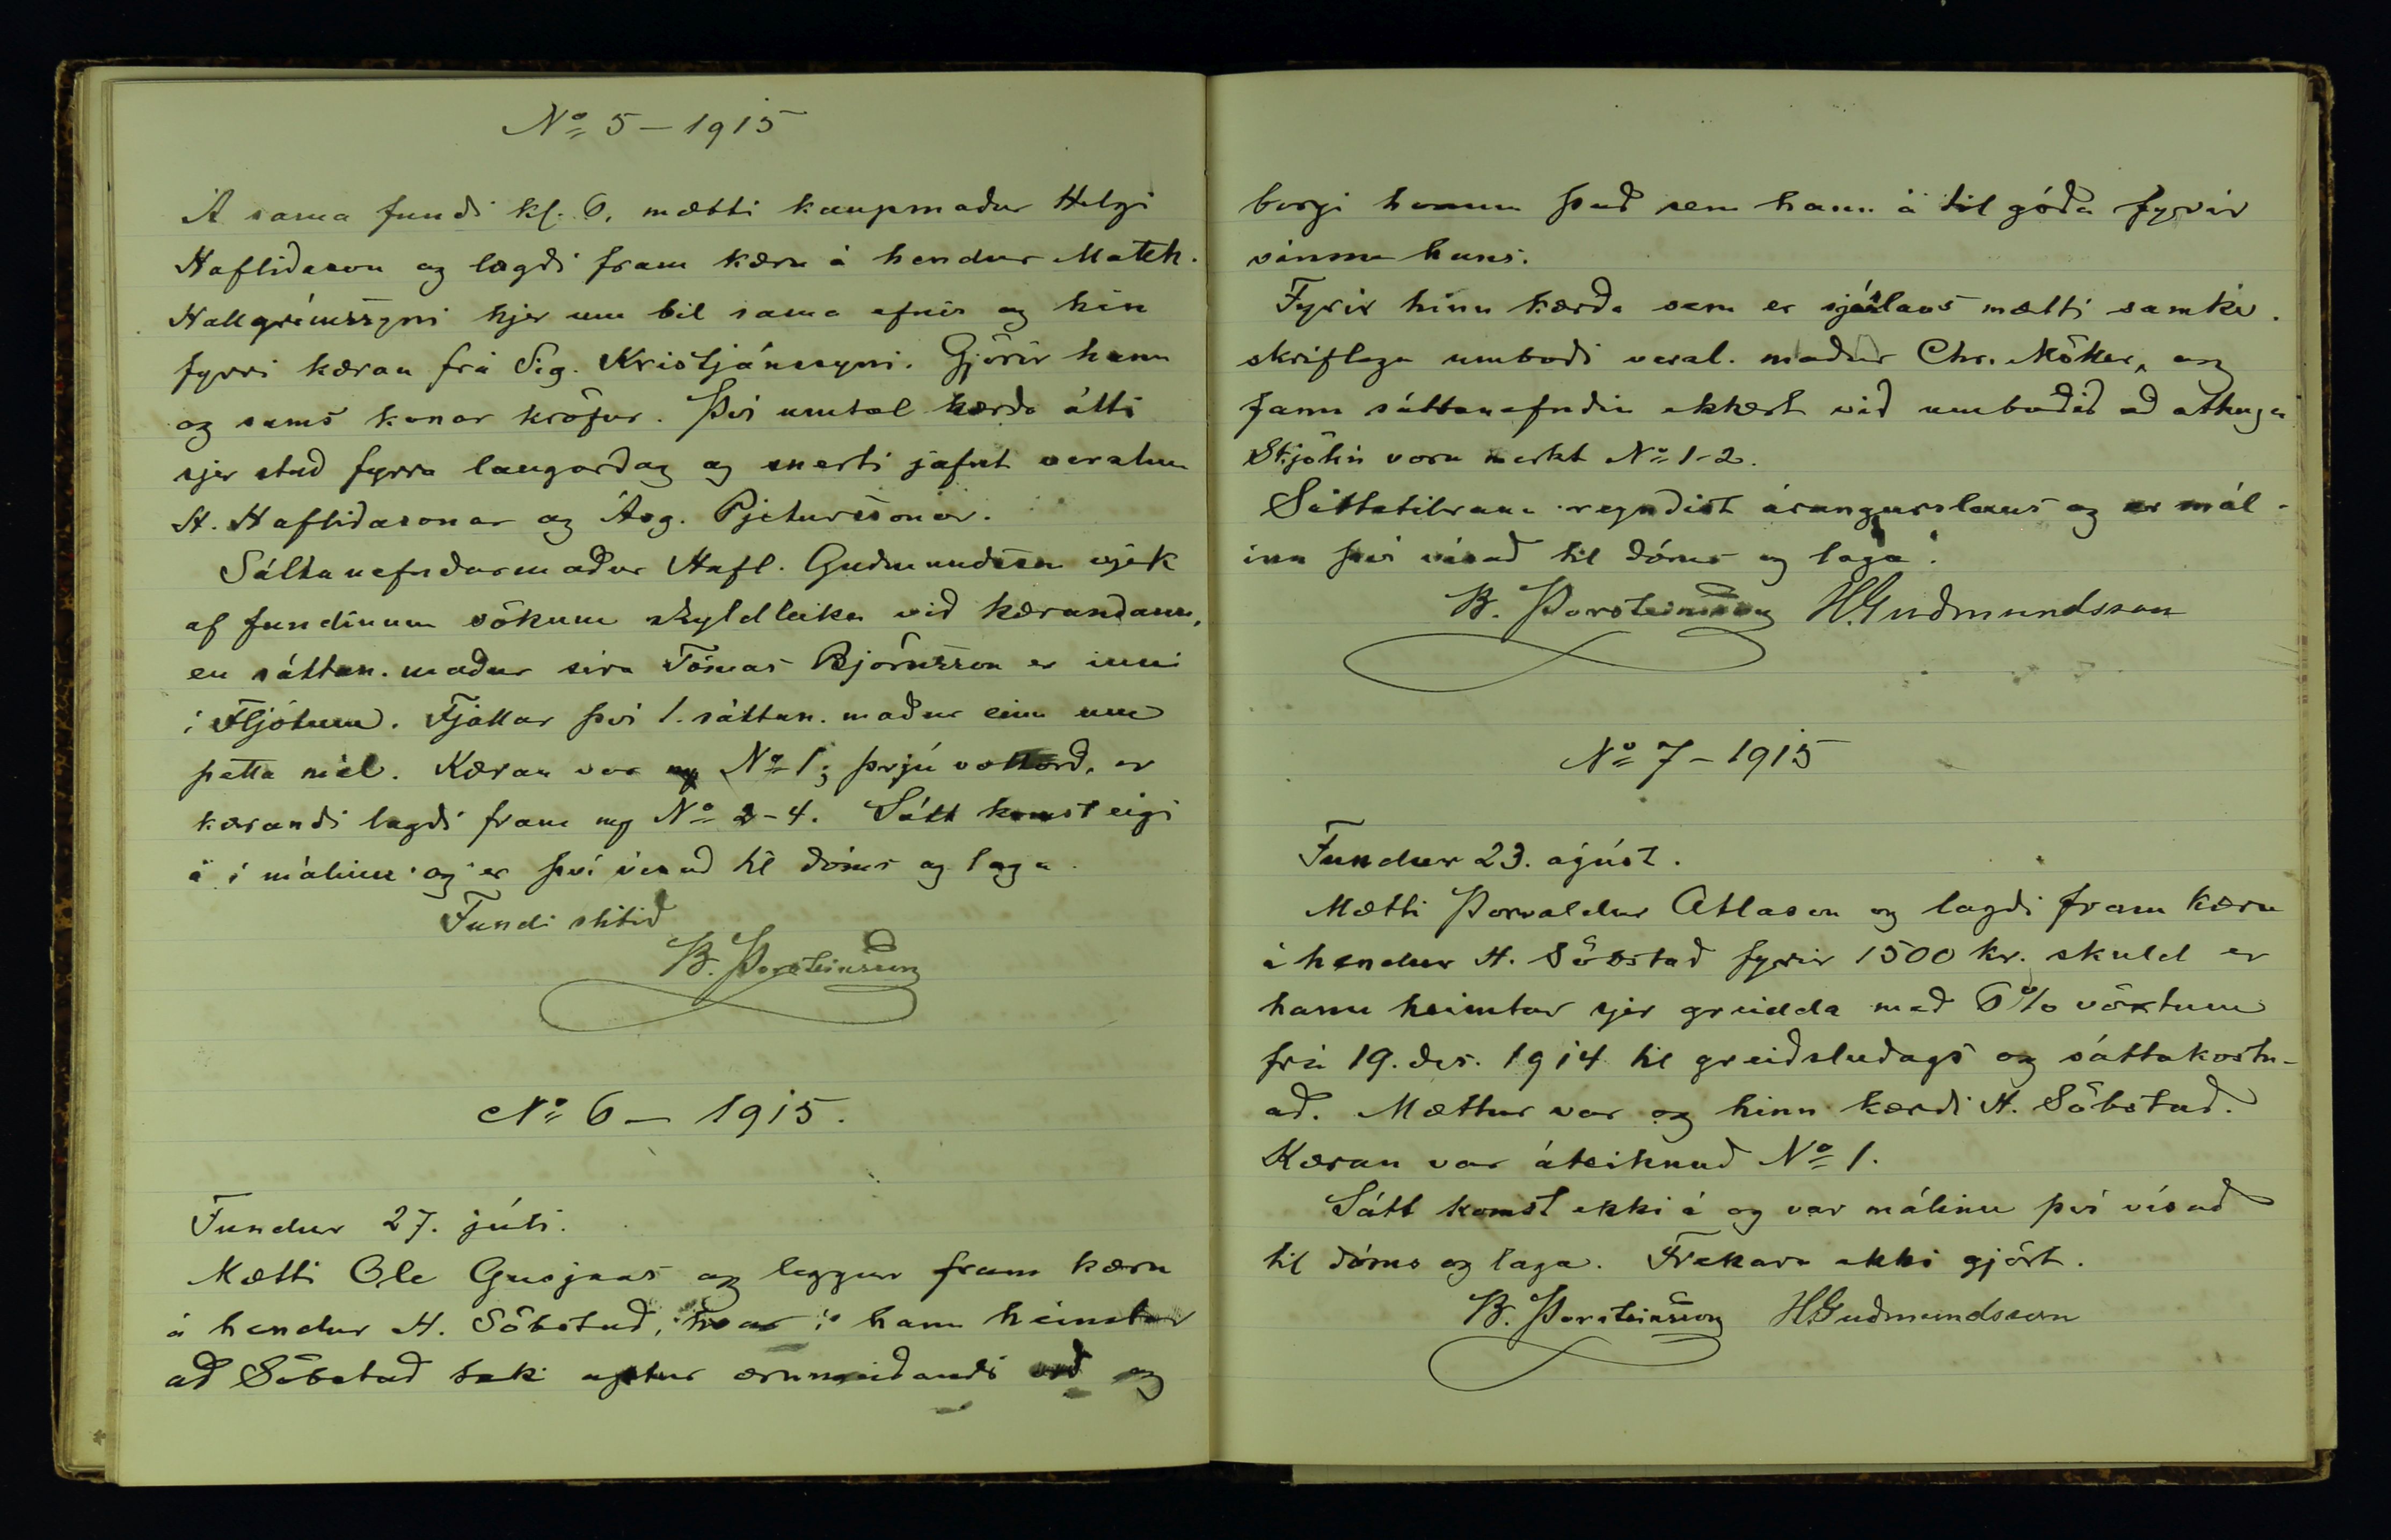 No 5 – 1915
Á sama fundi kl. 6, mætti kaupmaður Helgi
Hafliðason og lagði fram kæru á hendur Matth.
Hallgrímssyni hjer um bil sama efnis og hin
fyrri kæran frá Sig. Kristjánssyni. Gjörir hann
og sams konar kröfur. Því umtal kærða átti
sjer stað fyrra laugardag og snerti jafnt verslun
H. Hafliðasonar og Ásg. Pjeturssonar.
Sáttanefndarmaður Hafl. Guðmundsson vjek
af fundinum sökum skyldleika við kærandann,
en sáttan. maður sira Tómas Björnsson er inni
í Fljótum. Fjallar því 1. sáttan. maður einn um
þetta mál. Kæran var No 1; þrjú vottorð, er
kærandi lagði fram No 2-4. Sátt komst eigi
á í málinu og er því vísað til dóms og laga
Fundi slitið
B. Þorsteinsson
No 6 – 1915.
Fundur 27. júlí.
Mætti Ole og leggur fram kæru
á hendur H. Söbstað, hvar í hann heimtar
að Söbstað taki aptur ærumeiðandi orð og
borgi honum það sem hann á til góða fyrir
vinnu hans.
Fyrir hinn kærða sem er mætti samkv.
skriflegu umboði versl. maður Chr. Möller, og
fann sáttanefndin ekkert við umboðið að athuga
Skjölin voru merkt No 1-2.
Sáttatilraun reyndist árangurslaus og er mál-
inu því vísað til dóms og laga.
B. Þorsteinsson H.Guðmundsson
No 7 – 1915
Fundur 23. ágúst.
Mætti Þorvaldur Atlason og lagði fram kæru
á hendur H. Söbstað fyrir 1500 kr. skuld er
hann heimtar sjer greidda með 6% vöxtum
frá 19. des. 1914 til greiðsludags og sáttakostn-
að. Mættur var og hinn kærði H. Söbstað.
Kæran var áteiknuð No 1.
Sátt komst ekki á og var málinu því vísað
til dóms og laga. Frekara ekki gjört.
B. Þorsteinsson H.Guðmundsson